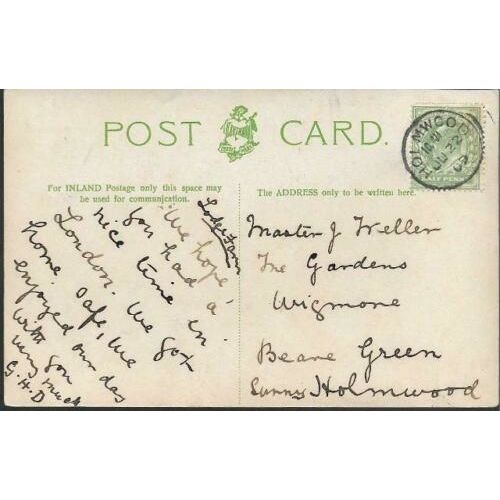 POST CARD.
For INLAND Postage only this space may
be used for communication.
The ADDRESS only to be written here.
HOLMWOOD
JU 22
HALF PENNY
Lodge Farm
We hope
you had a
nice time in
London. We got
home safe, we
enjoyed our day
with you
very much
G.H.D
Master J Weller
The Gardens
Wigmore
Beare Green
Surrey Holmwood